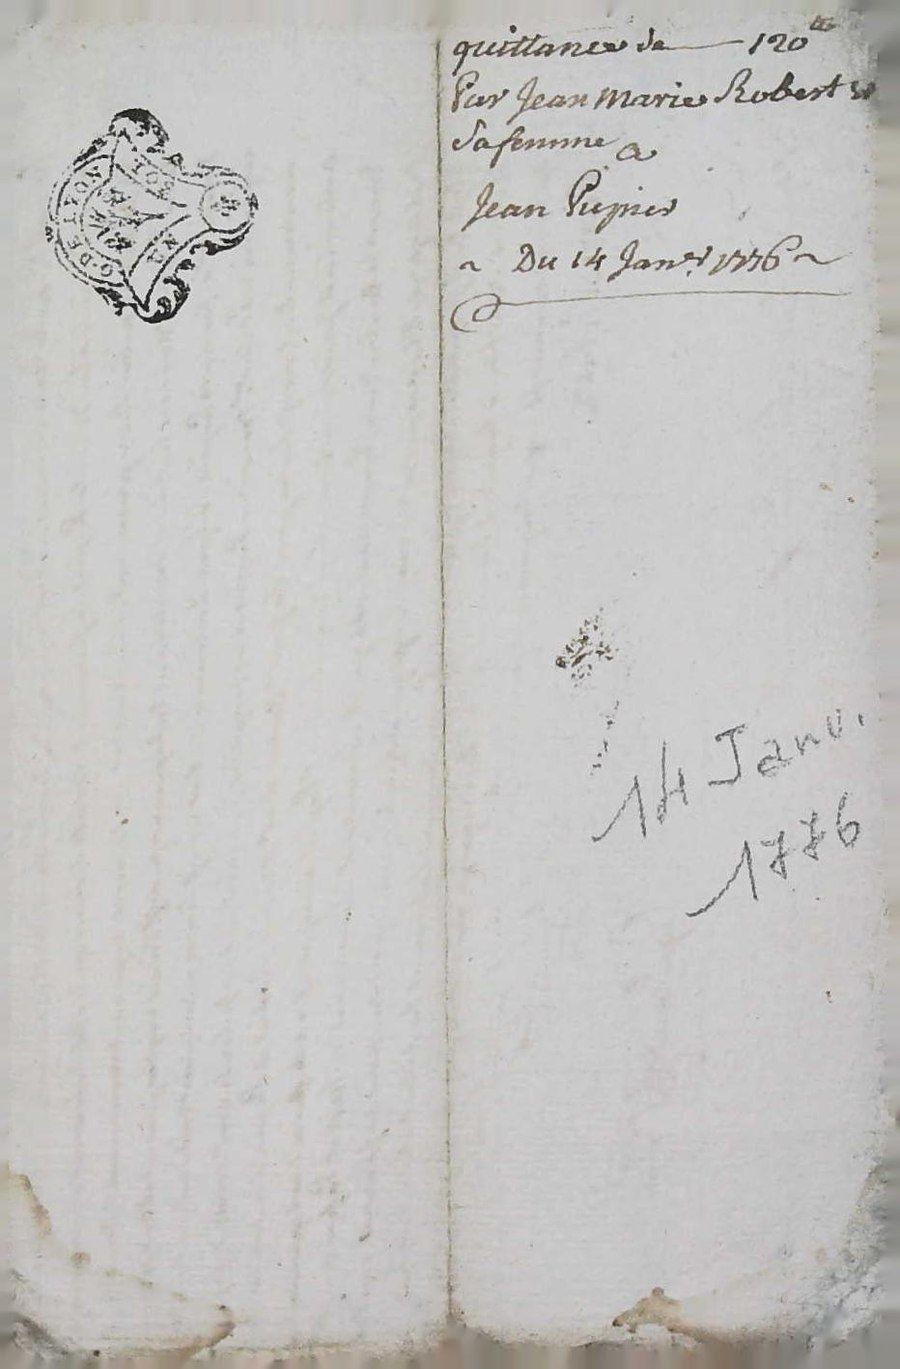 quittance de — 120 ₶
Par Jean Marie Robert et
Sa femme a
Jean Pupier
~ Du 14 Janer 1776 ~
14 Janv.
1776
G DE LYON
SOL